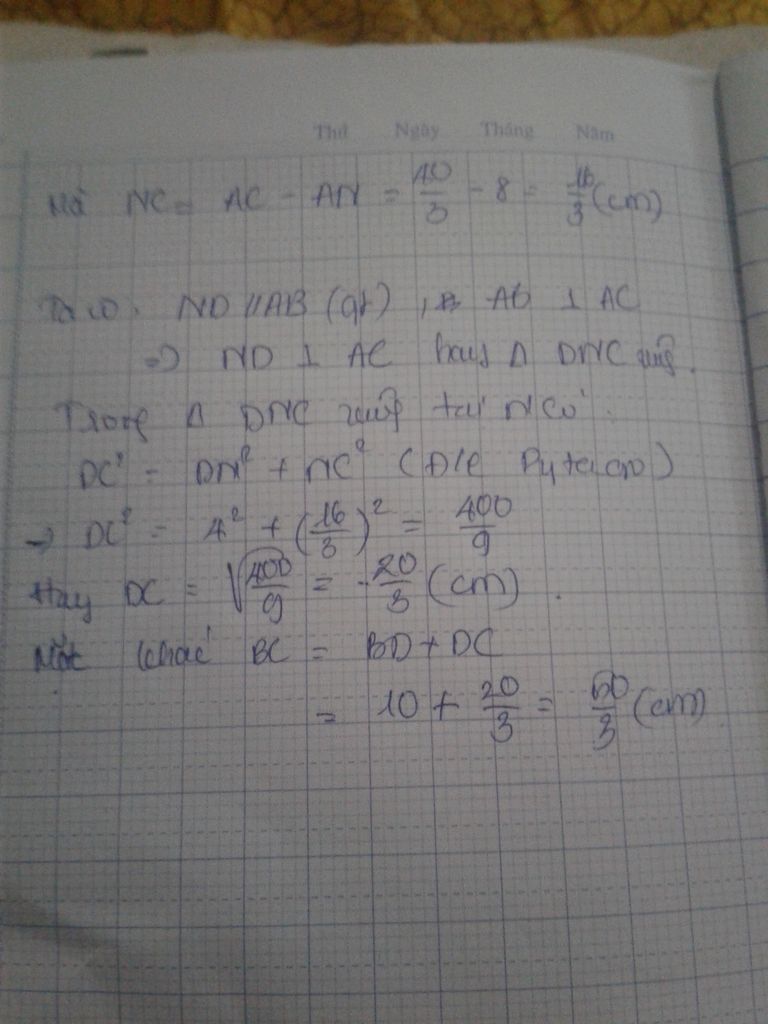 Thứ Ngày Tháng Năm
Mà NC = AC - AN = 40/3 - 8 = 16/3 (cm)
Ta có: ND // AB (gt), AB ⊥ AC
=> ND ⊥ AC hay Δ DNC vuông.
Trong Δ DNC vuông tại N có:
DC² = DN² + NC² (Đlé Pytago)
→ DC² = 4² + (16/3)² = 400/9
Hay DC = √400/9 = 20/3 (cm).
Mặt khác BC = BD + DC
= 10 + 20/3 = 50/3 (cm)